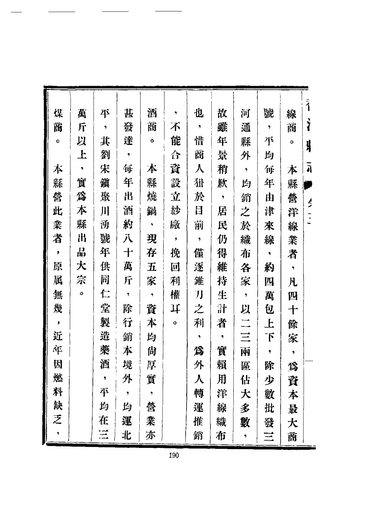 線商。　本縣營洋線業者，凡四十餘家，為資本最大商
號，平均每年由津來線，約四萬包上下，除少數批發三
河通縣外，均銷之於織布各家，以二三兩區佔大多數，
故雖年景稍歉，居民仍得維持生計者，實賴用洋線織布
也，惜商人狃於目前，僅逐錐刀之利，為外人轉運推銷
，不能合資設立紗廠，挽回利權耳。
酒商。　本縣燒鍋，現存五家，資本均尚厚實，營業亦
甚發達，每年出酒約八十萬斤，除行銷本境外，均運北
平，其劉宋鎮聚川湧號年供同仁堂製造藥酒，平均在三
萬斤以上，實為本縣出品大宗。
煤商。　本縣營此業者，原屬無幾，近年因燃料缺乏，
190